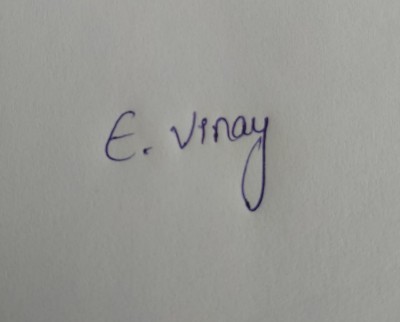 E. Vinay